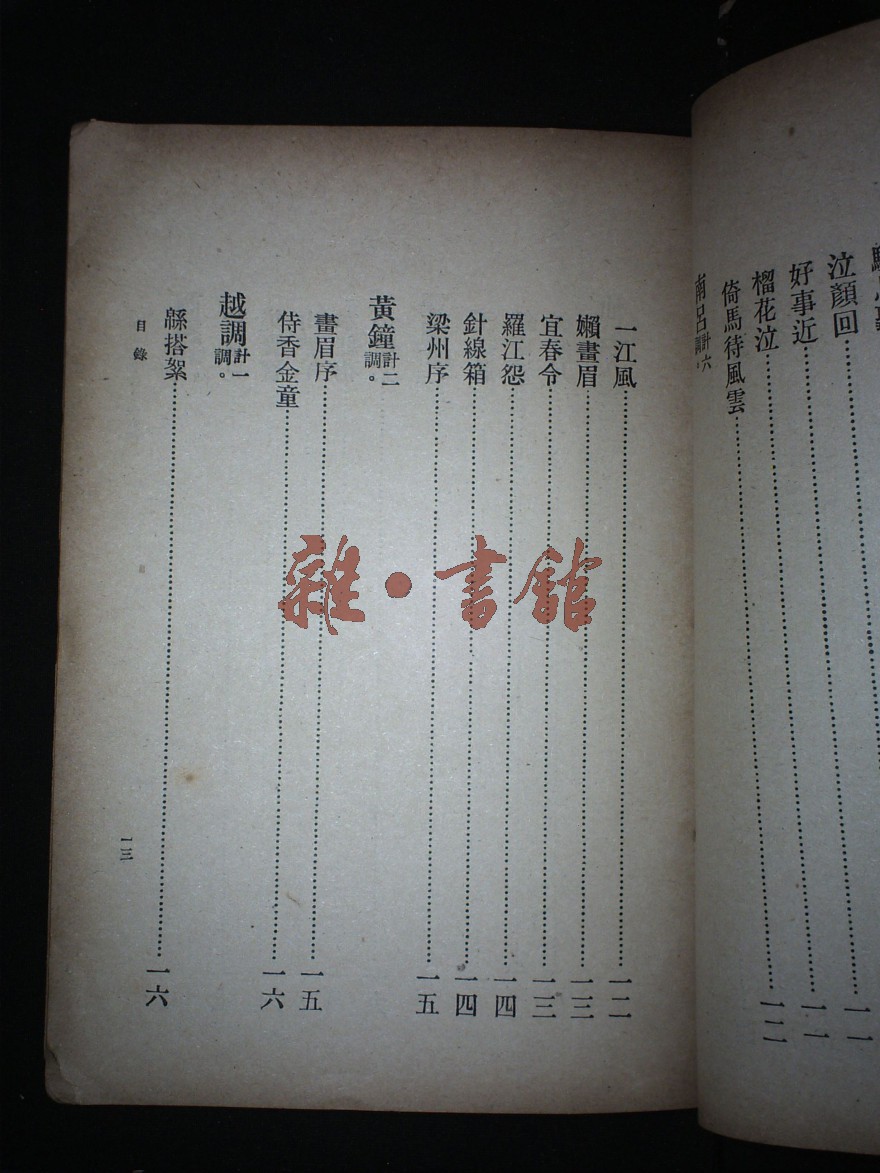 泣顏回……一一
好事近……一一
榴花泣……一二
倚馬待風雲
南呂計六調。
一江風……一二
嬾畫眉……一三
宜春令……一三
羅江怨……一四
針線箱……一四
梁州序……一五
黃鐘計二調。
畫眉序……一五
侍香金童……一六
越調計一調。
緜搭絮……一六
目錄
一三
雜·書館